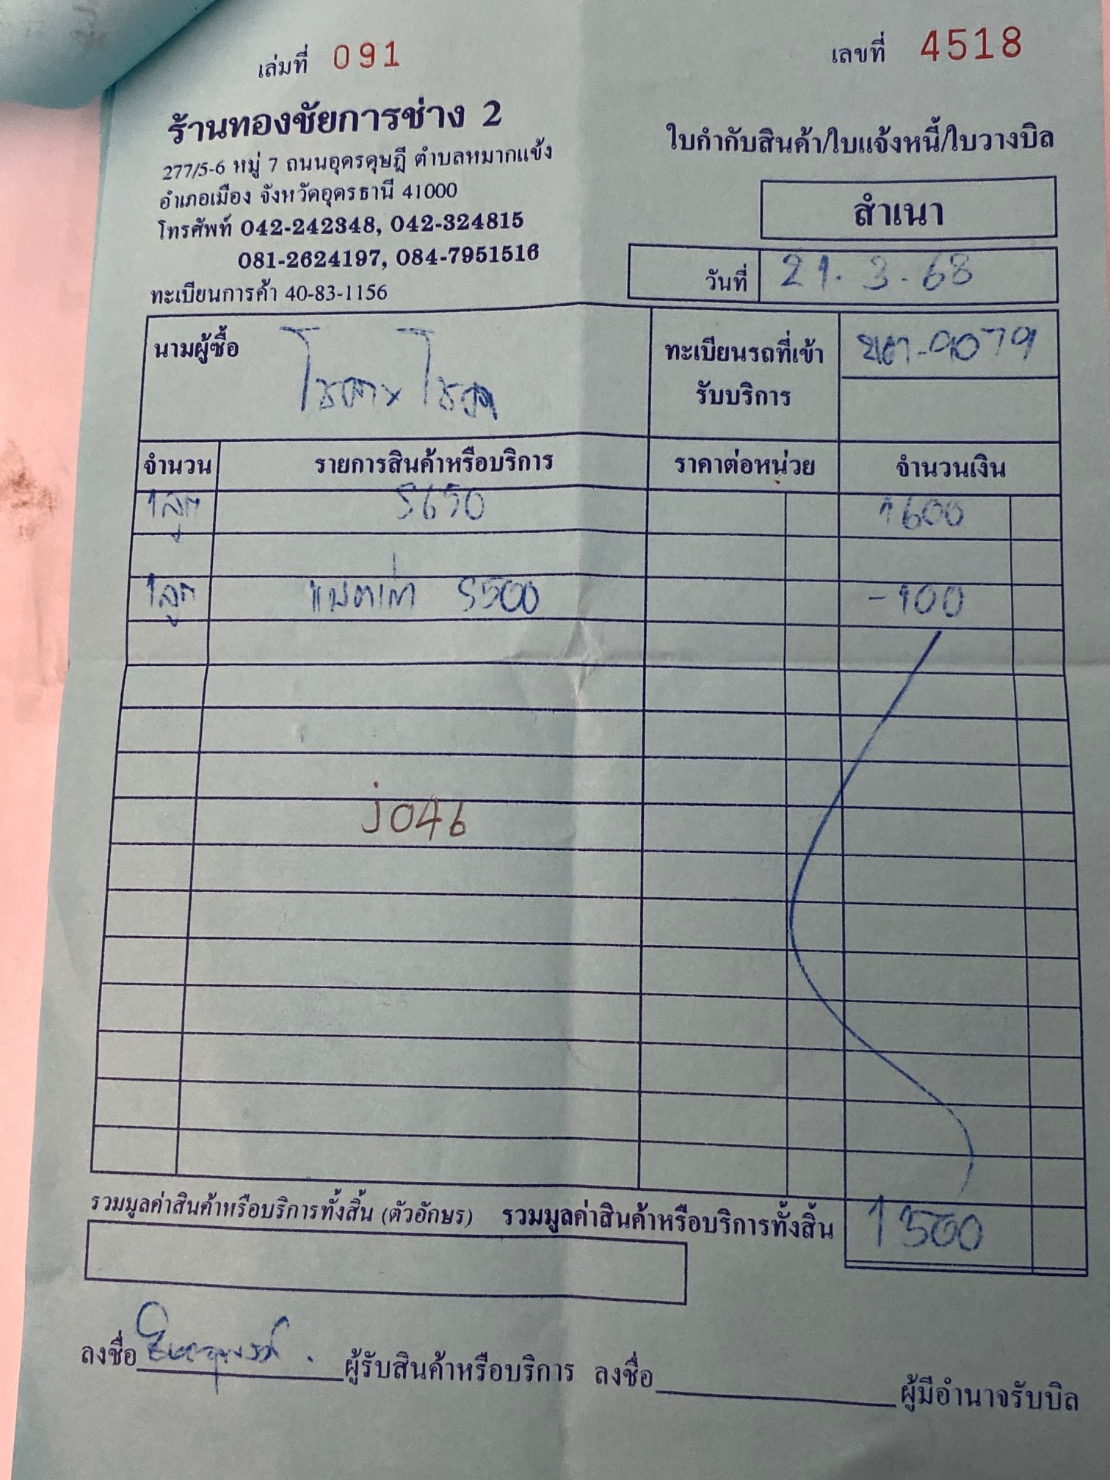 เล่มที่ 091
เลขที่ 4518
ร้านทองชัยการช่าง 2
277/5-6 หมู่ 7 ถนนอุดรดุษฎี ตำบลหมากแข้ง
อำเภอเมือง จังหวัดอุดรธานี 41000
โทรศัพท์ 042-242348, 042-324815
081-2624197, 084-7951516
ทะเบียนการค้า 40-83-1156
ใบกำกับสินค้า/ใบแจ้งหนี้/ใบวางบิล
สำเนา
วันที่ 21.3.68
นามผู้ซื้อ
ทะเบียนรถที่เข้า
รับบริการ
จำนวน รายการสินค้าหรือบริการ ราคาต่อหน่วย จำนวนเงิน
1ลูก S650 1600
1ลูก แบตเก่า S500 -100
J046
รวมมูลค่าสินค้าหรือบริการทั้งสิ้น (ตัวอักษร) รวมมูลค่าสินค้าหรือบริการทั้งสิ้น 1500
ลงชื่อ ผู้รับสินค้าหรือบริการ ลงชื่อ ผู้มีอำนาจรับบิล